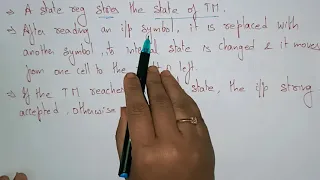 → A state reg stores the state of TM.
→ After reading an i/p symbol, it is replaced with
another symbol, its internal state is changed & it moves
from one cell to the left.
→ If the TM reaches state, the i/p string
accepted, otherwise